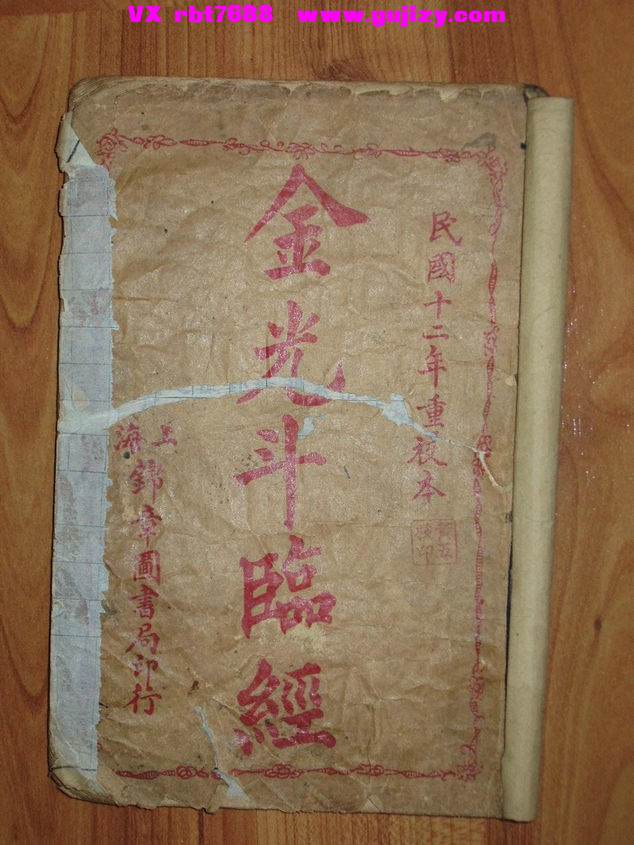 VX rbt7688 www.gujizy.com
民國十二年重校本
金光斗臨經
上海
錦章圖書局印行